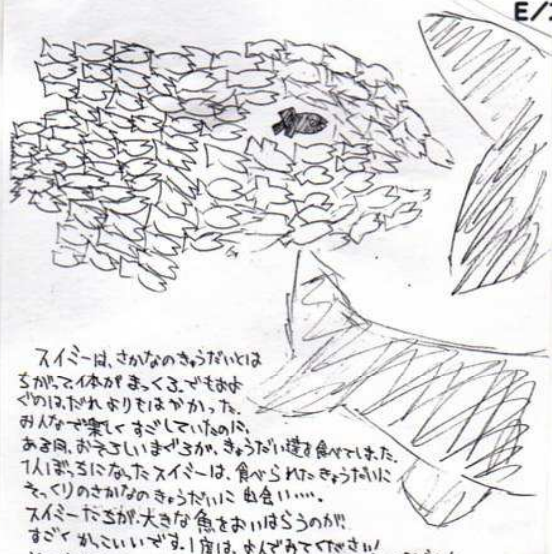 E/
スイミーは、さかなのきょうだいとは
ちがって、体がまっくろ。でもおよ
ぐのは、だれよりもはやかった。
みんなで楽しくすごしていたのに、
ある日、おそろしいまぐろが、きょうだい達を食べてしまった。
1人ぼっちになったスイミーは、食べられたきょうだいに
そっくりのさかなのきょうだいに出会い…。
スイミーたちが、大きな魚をおいはらうのが、
すごくかっこいいです。1度は、よんでみてください!